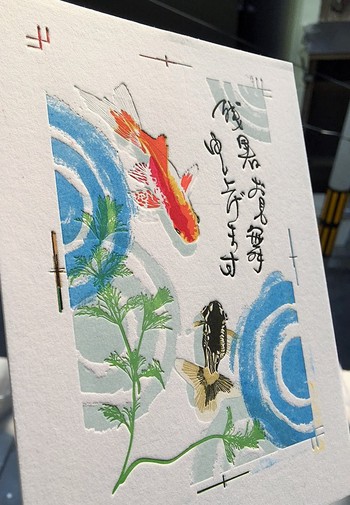 残暑お見舞
申し上げます